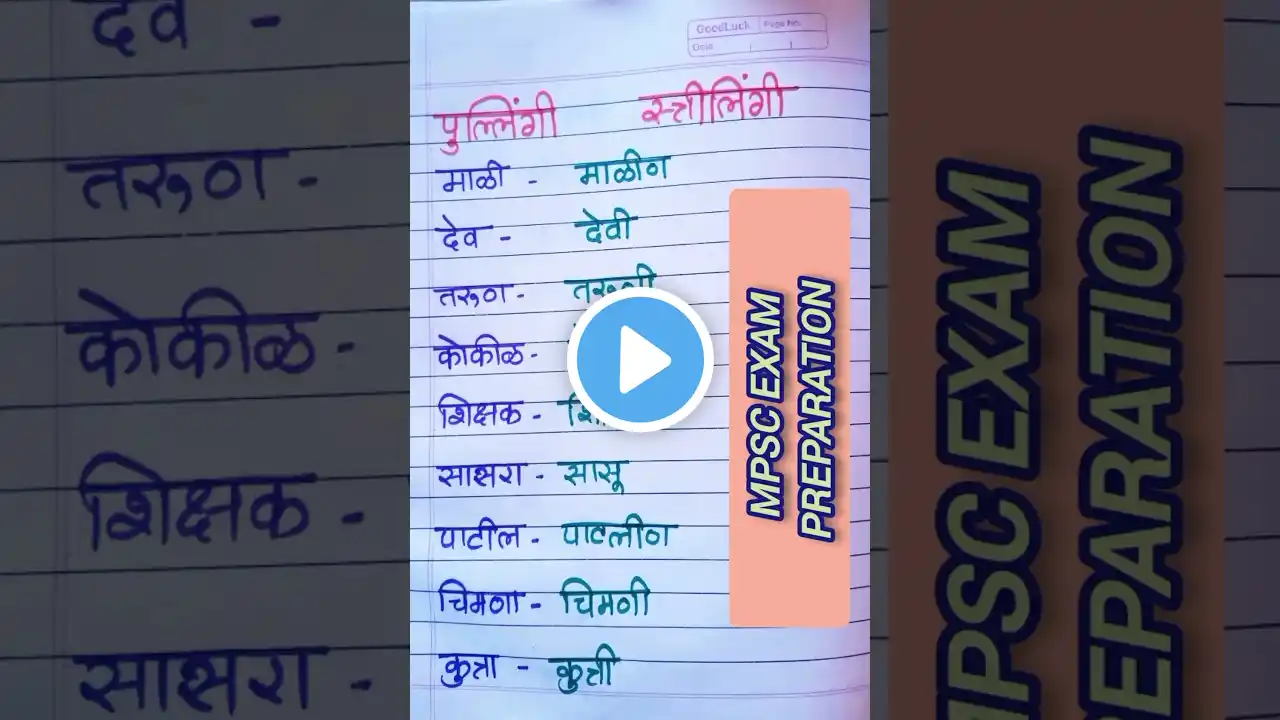 GoodLuck Page No.
Date
पुल्लिंगी स्त्रीलिंगी
माळी - माळीण
देव - देवी
तरुण - तरुणी
कोकीळ -
शिक्षक -
सासरा - सासू
पाटील - पाटलीण
चिमणा - चिमणी
कुत्रा - कुत्री
MPSC EXAM
PREPARATION
देव -
तरुण -
कोकीळ -
शिक्षक -
सासरा -
MPSC EXAM
PREPARATION